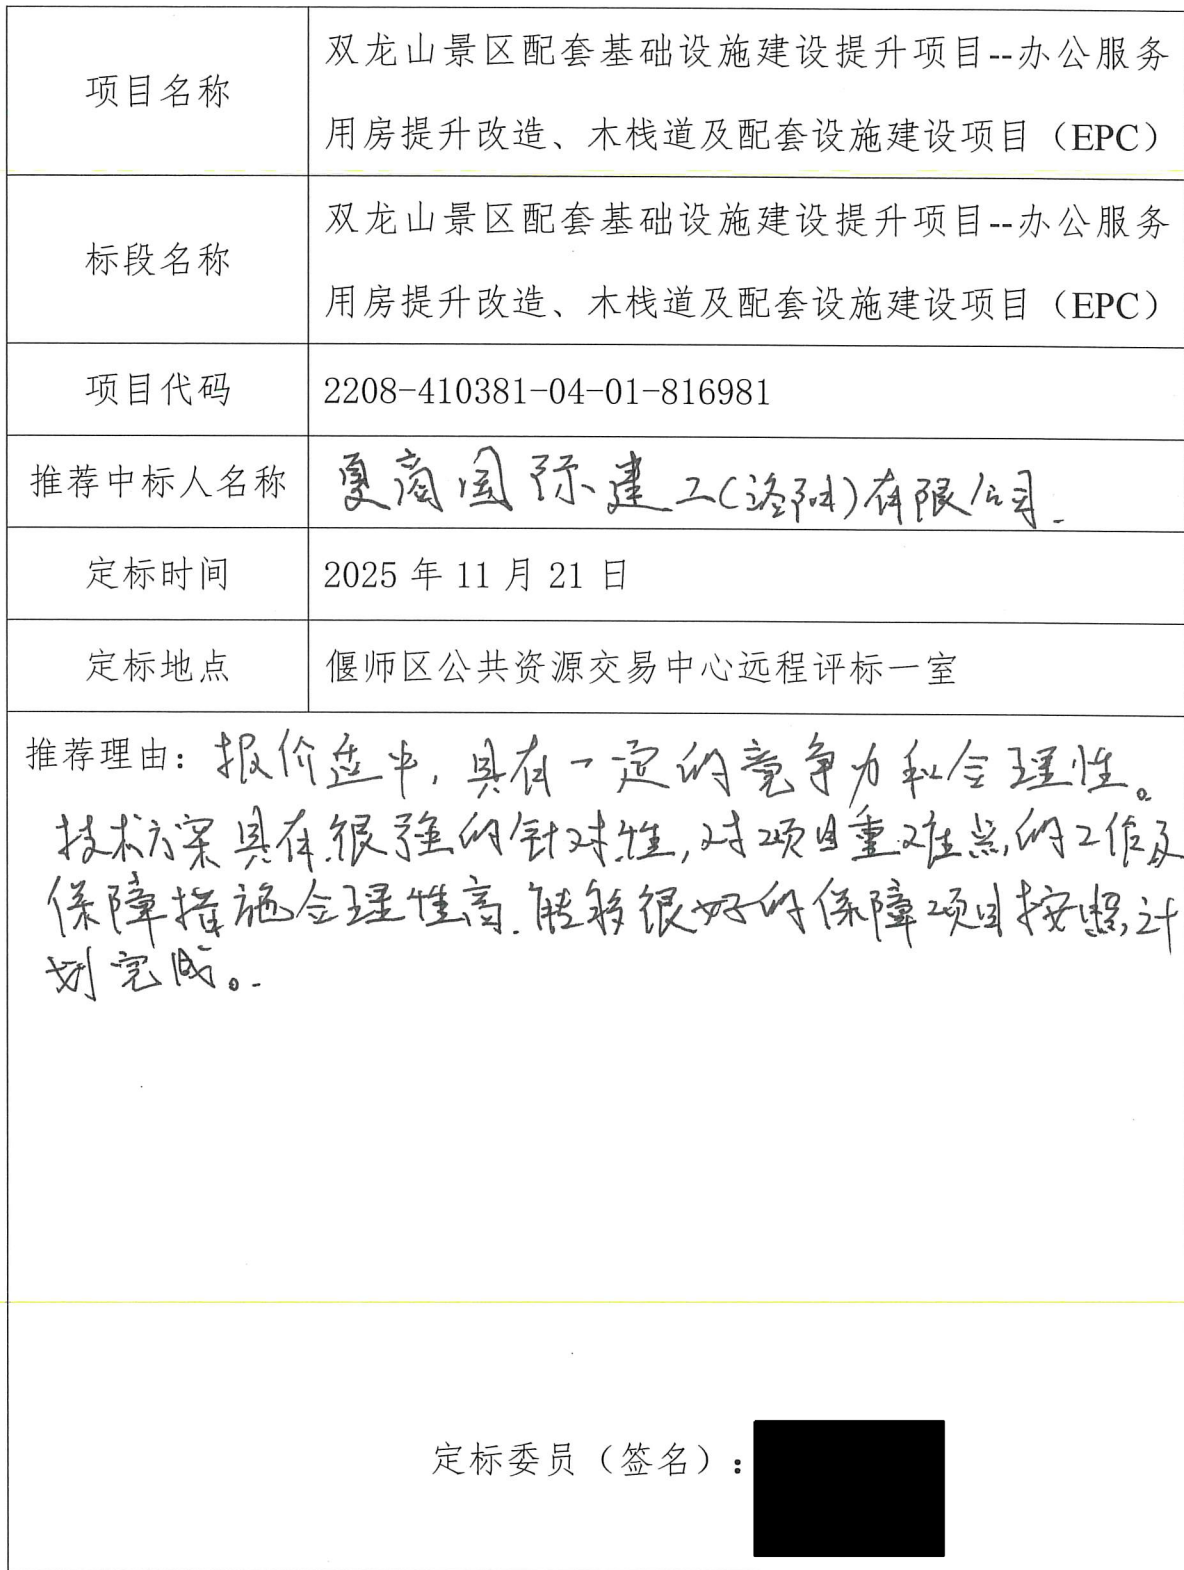 项目名称
双龙山景区配套基础设施建设提升项目--办公服务
用房提升改造、木栈道及配套设施建设项目（EPC）
标段名称
双龙山景区配套基础设施建设提升项目--办公服务
用房提升改造、木栈道及配套设施建设项目（EPC）
项目代码
2208-410381-04-01-816981
推荐中标人名称
夏商国际建工(洛阳)有限公司.
定标时间
2025 年 11 月 21 日
定标地点
偃师区公共资源交易中心远程评标一室
推荐理由：报价适中，具有一定的竞争力和合理性。
技术方案具有很强的针对性，对项目重难点的工作及
保障措施合理性高.能够很好的保障项目按照计
划完成。
定标委员（签名）：